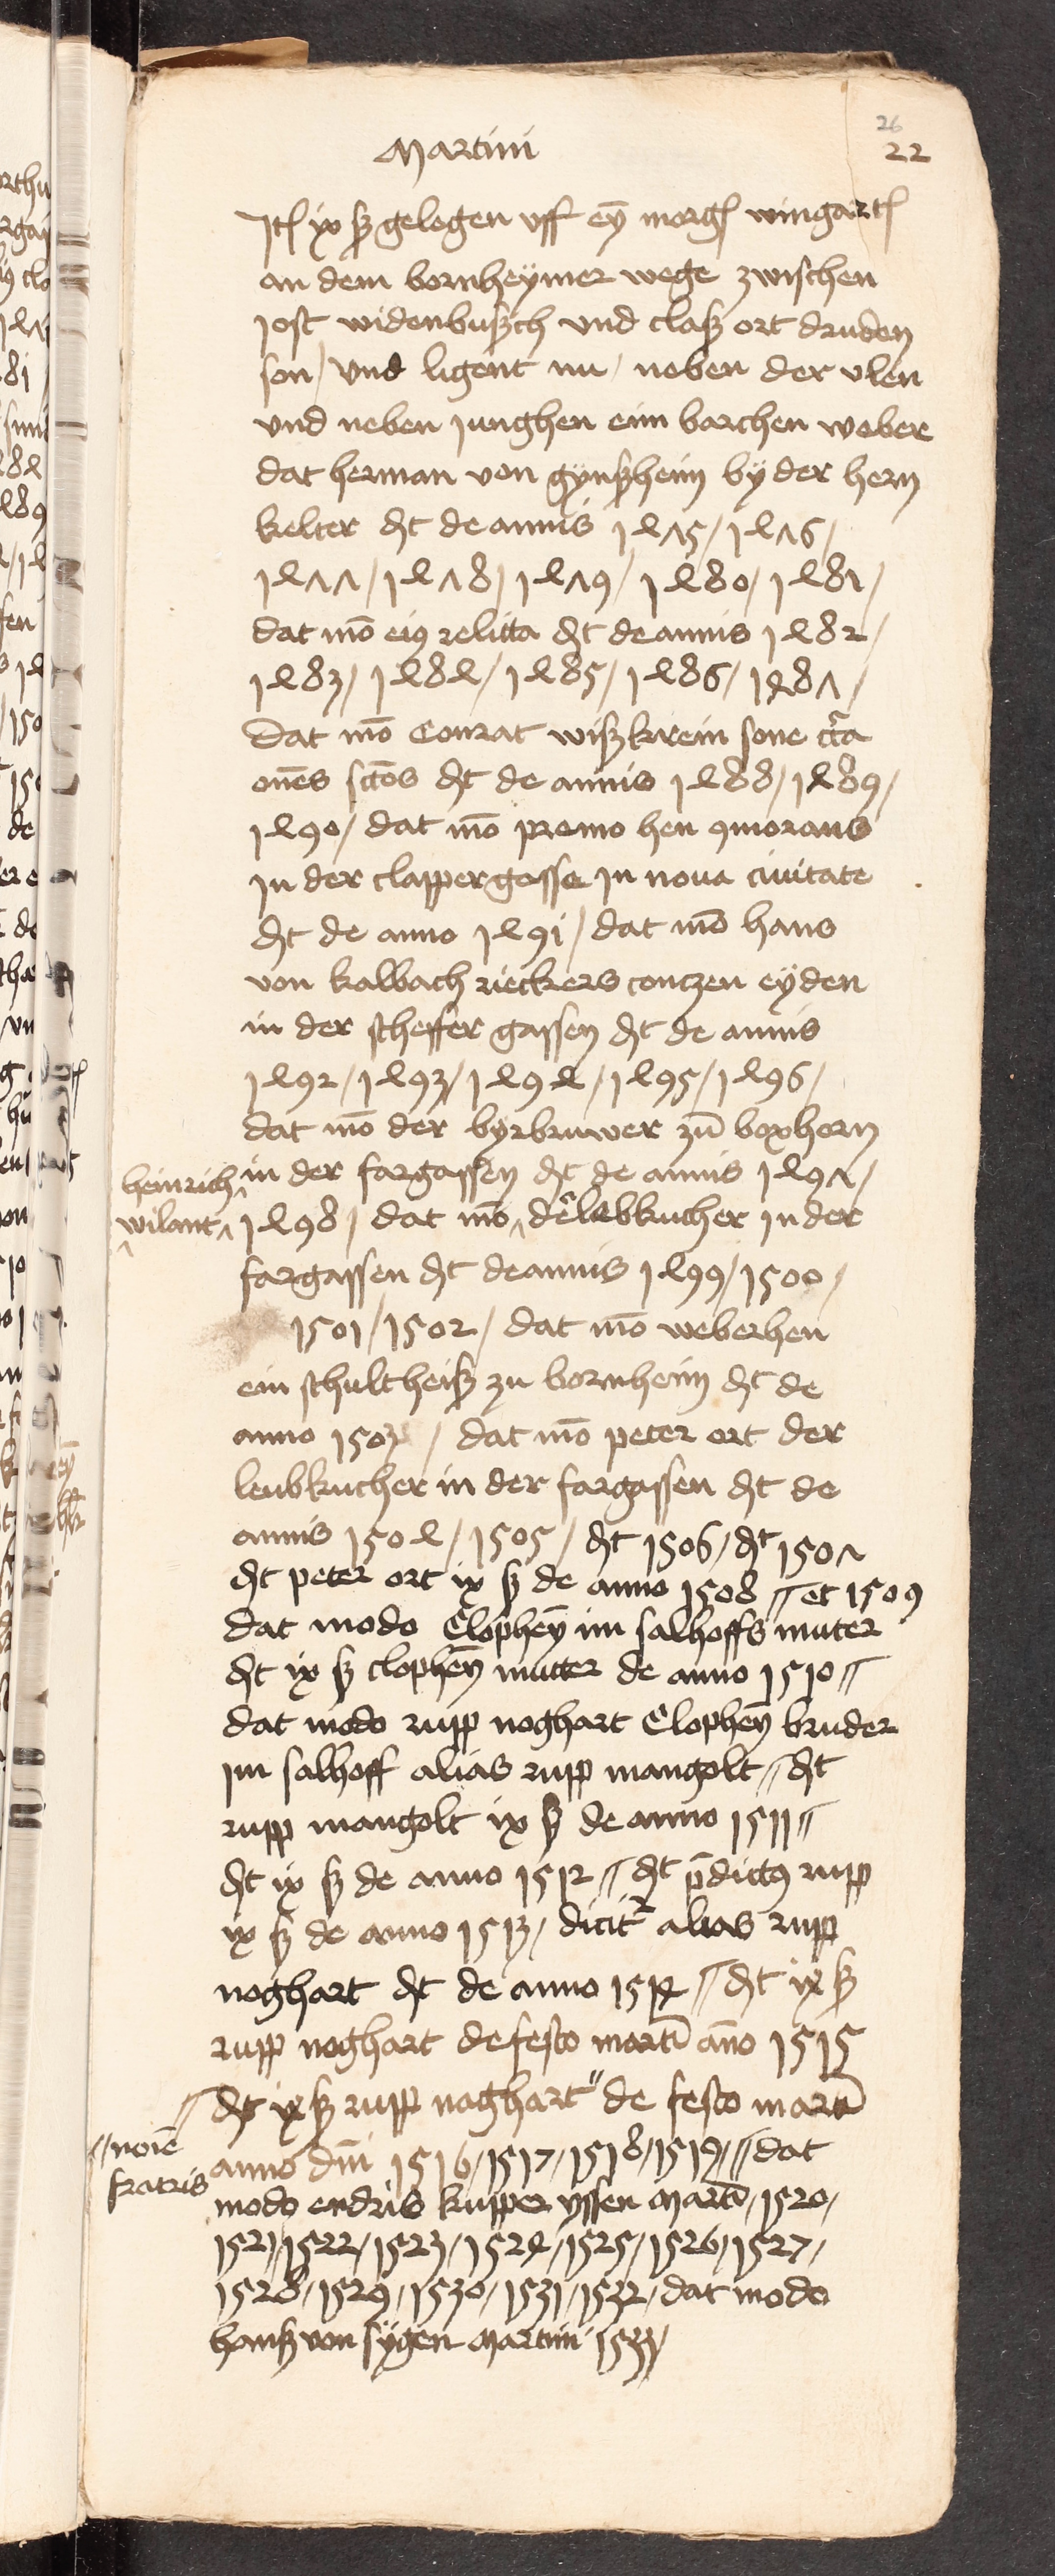 26
22
Martini
Itē ix ß gelegen vff eȳ morgē wingartē
an dem bornheÿmer wege zwischen
Jost widenbusch und claß ort druden
son / vnd ligent nu / neben der vlen
vnd neben junghen eim barchen weber
dat herman von gynßheim bÿ der hern
kelter dt de annis 1475 / 1476 /
1477 / 1478 / 1479 / 1480 / 1481 /
dat mō eiꝯ relicta dt de annis 1482 /
1483 / 1484 / 1485 / 1486 / 1487 /
Dat mō Conrat wißkrein sone
om̄es sctōs dt de annis 1488 / 1489 /
1490 / dat mō promo hen ꝯmorans
in der clappergasse in noua ciuitate
dt de anno 1491 / dat mō hans
von kalbach rieckers contzen eÿden
in der scheffer gassen dt de annis
1492 / 1493 / 1494 / 1495 / 1496 /
dat mō der byrbruwer zū boxhorn
in der fargassen dt de annis 1497 /
heinrich
wilant
1498 / dat mō der lebkucher in der
fargassen dt de annis 1499 / 1500 /
1501 / 1502 / dat mō weberhen
ein schultheiß zu bornheim dt de
anno 1503 / dat mō peter ort der
leubkucher in der fargassen dt de
annis 1504 / 1505 / dt 1506 / dt 1507
dt peter ort ix ß de anno 1508 // et 1509
dat modo Clopheȳ im salhoffs muter
dt ix ß clopheȳ mutter de anno 1510 //
dat modo rupp noghart Clopheȳ bruder
im salhoff alias rupp mangolt // dt
rupp mangolt ix ß de anno 1511 //
dt ix ß de anno 1512 // dt p̄dictꝯ rupp
ix ß de anno 1513 / dicit̄ alias rupp
noghart dt de anno 1514 // dt ix ß
rupp noghart de festo martī āno 1515
// dt ix ß rupp noghart" de festo martī
// noīe
fratris
anno dn̄i 1516 / 1517 / 1518 / 1519 // dat
modo endris kupper yssen Martī / 1520 /
1521 / 1522 / 1523 / 1524 / 1525 / 1526 / 1527 /
1528 / 1529 / 1530 / 1531 / 1532 / dat modo
hanß von sÿgen Martini 1533 /